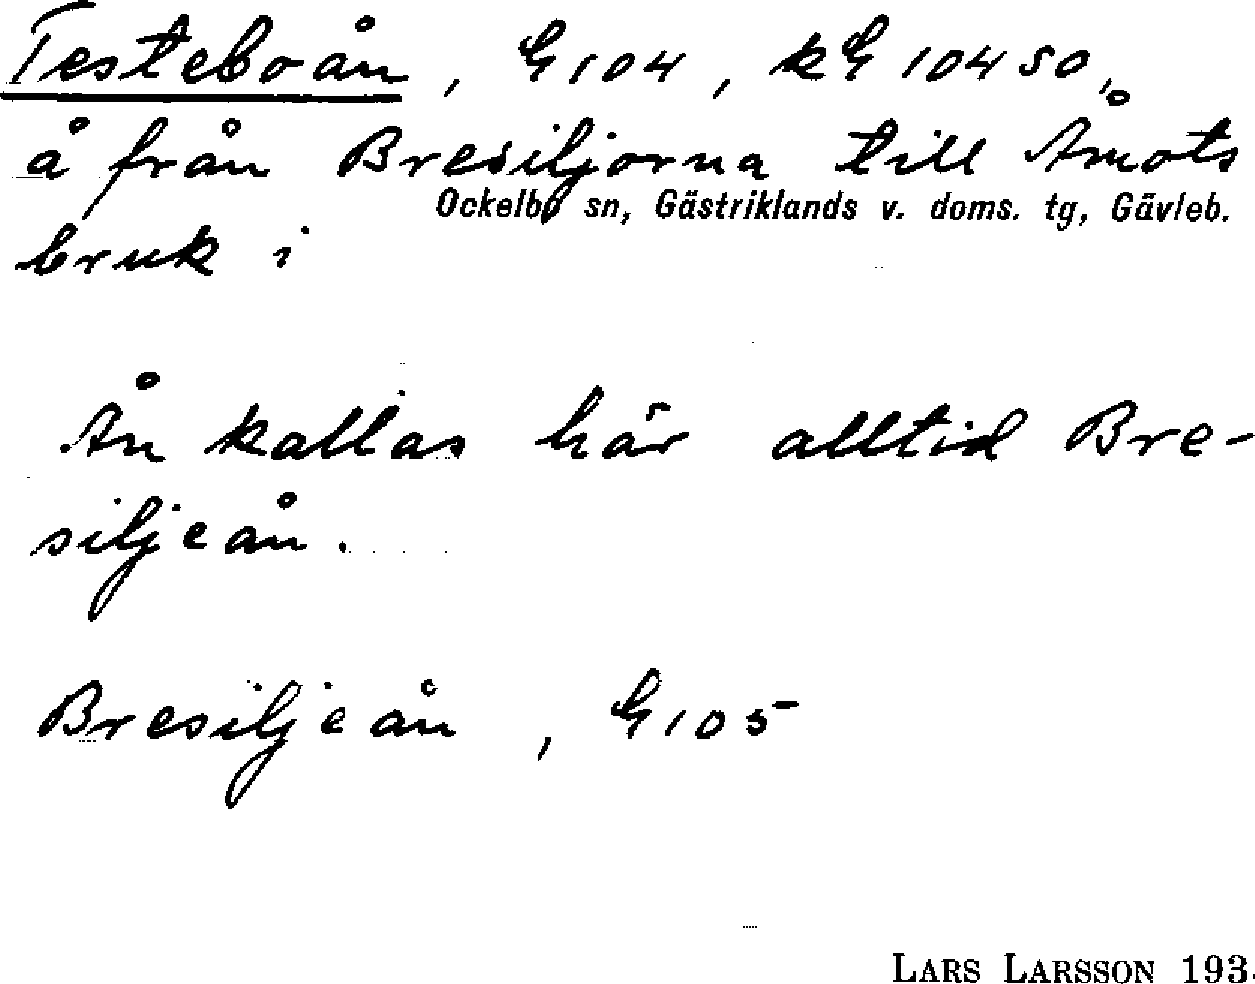 Testeboån, G104, kG 104 SO,
å från Bresiljorna till Åmots
Ockelbo sn, Gästriklands v. doms. tg, Gävleb.
bruk i
Ån kallas här alltid Bre-
siljeån.
Bresiljeån, G105
LARS LARSSON 193